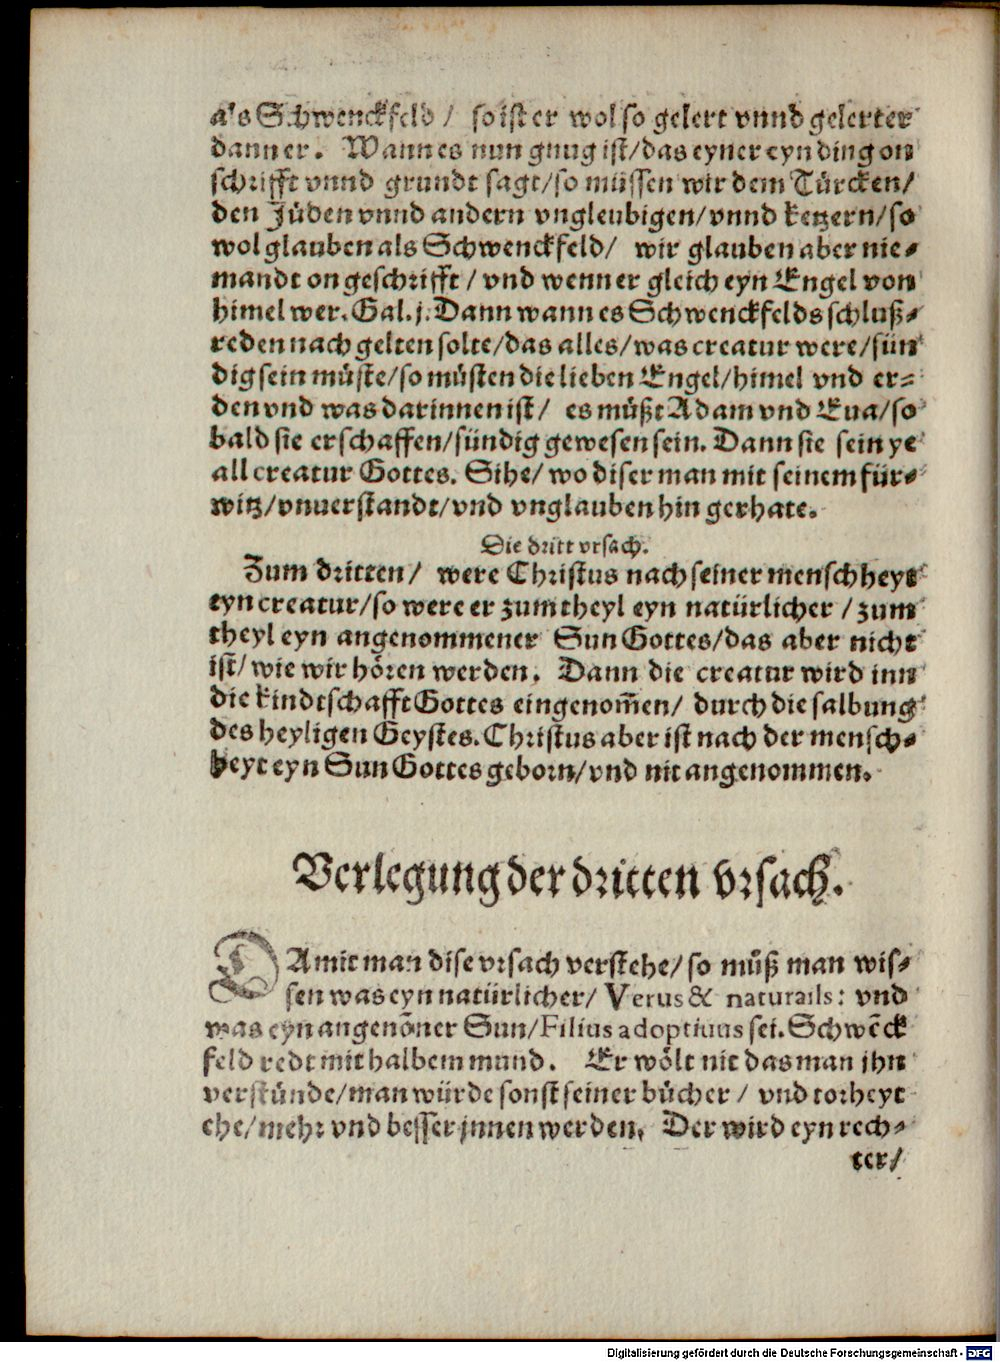 als Schwenckfeld / so ist er wol so gelert vnnd gelerter
dann er. Wann es nun gnug ist/das eyner eyn ding on
schrifft vnnd grundt sagt/so müssen wir dem Türcken/
den Jüden vnnd andern vngleubigen/vnnd ketzern/so
wol glauben als Schwenckfeld/ wir glauben aber nie⸗
mandt on geschrifft / vnd wenn er gleich eyn Engel von
himel wer. Gal. j. Dann wann es Schwenckfelds schluß⸗
reden nach gelten solte/das alles/was creatur were/sün
dig sein müste/so müsten die lieben Engel/himel vnd er⸗
den vnd was darinnen ist/ es müßt Adam vnd Eua/so
bald sie erschaffen/sündig gewesen sein. Dann sie sein ye
all creatur Gottes. Sihe/ wo diser man mit seinem für⸗
witz/vnuerstandt/vnd vnglauben hin gerhate.
Die dritt vrsach.
Zum dritten/ were Christus nach seiner menschheyt
eyn creatur/so were er zum theyl eyn natürlicher / zum
theyl eyn angenommener Sun Gottes/das aber nicht
ist/ wie wir hören werden. Dann die creatur wird inn
die kindtschafft Gottes eingenom̃en/ durch die salbung
des heyligen Geystes. Christus aber ist nach der mensch⸗
heyt eyn Sun Gottes geborn/vnd nit angenommen.
Verlegung der dritten vrsach.
DAmit man dise vrsach verstehe/ so müß man wis⸗
sen was eyn natürlicher/ Verus & naturalis: vnd
was eyn angenõner Sun/Filius adoptiuus sei. Schwẽck
feld redt mit halbem mund. Er wölt nit das man jhn
verstünde/man würde sonst seiner bücher / vnd torheyt
ehe/mehr vnd besser jnnen werden. Der wird eyn rech⸗
ter/
Digitalisierung gefördert durch die Deutsche Forschungsgemeinschaft - DFG